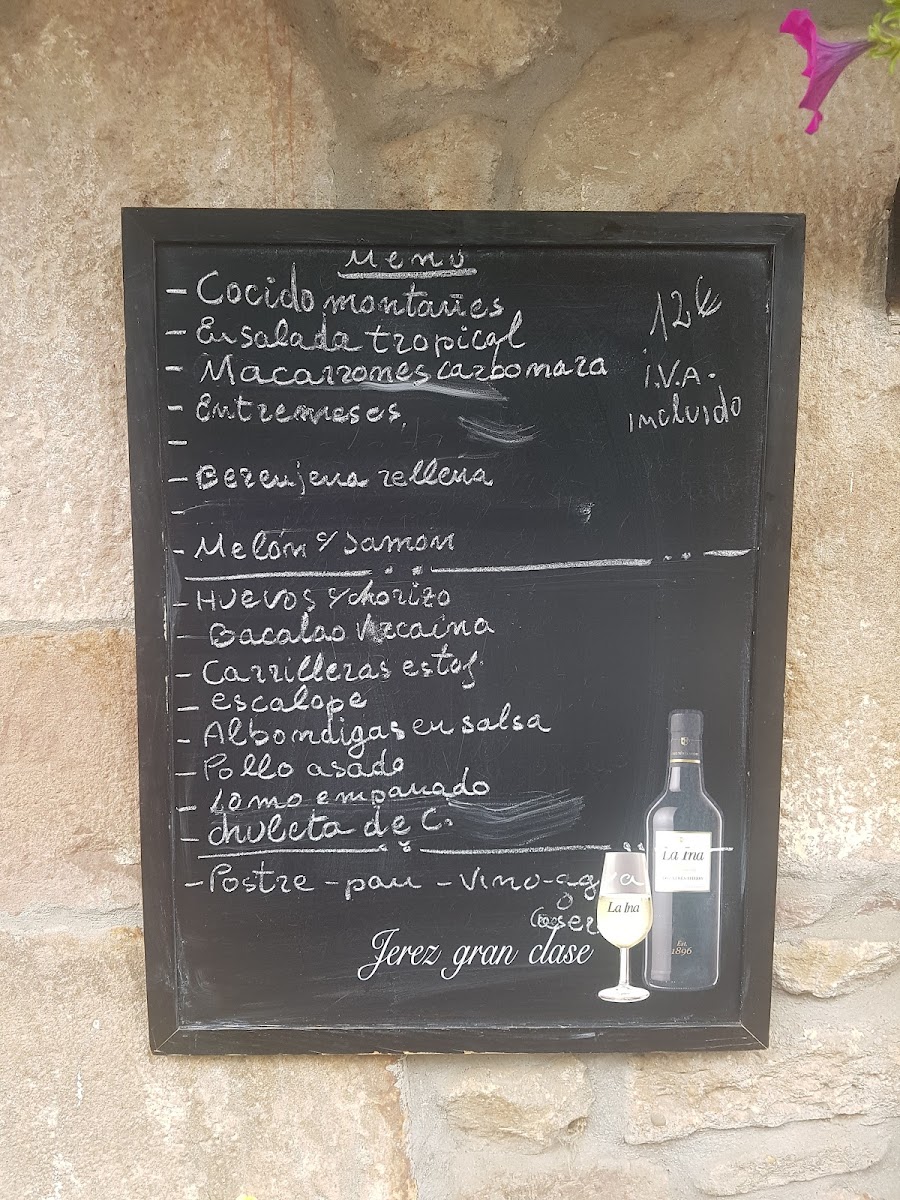 Menú
- Cocido montañes
- Ensalada tropical
12€
- Macarrones carbonara
I.V.A.
incluido
- Entremeses.
-
- Berenjena rellena
-
- Melón y Jamón
- Huevos y chorizo
Bacalao Vizcaina
- Carrilleras estof.
- escalope
- Albondigas en salsa
- Pollo asado
- Lomo empanado
- chuleta de C.
- Postre - pan - Vino - agua
Caser
Jerez gran clase
La Ina
La Ina
Est.
1896